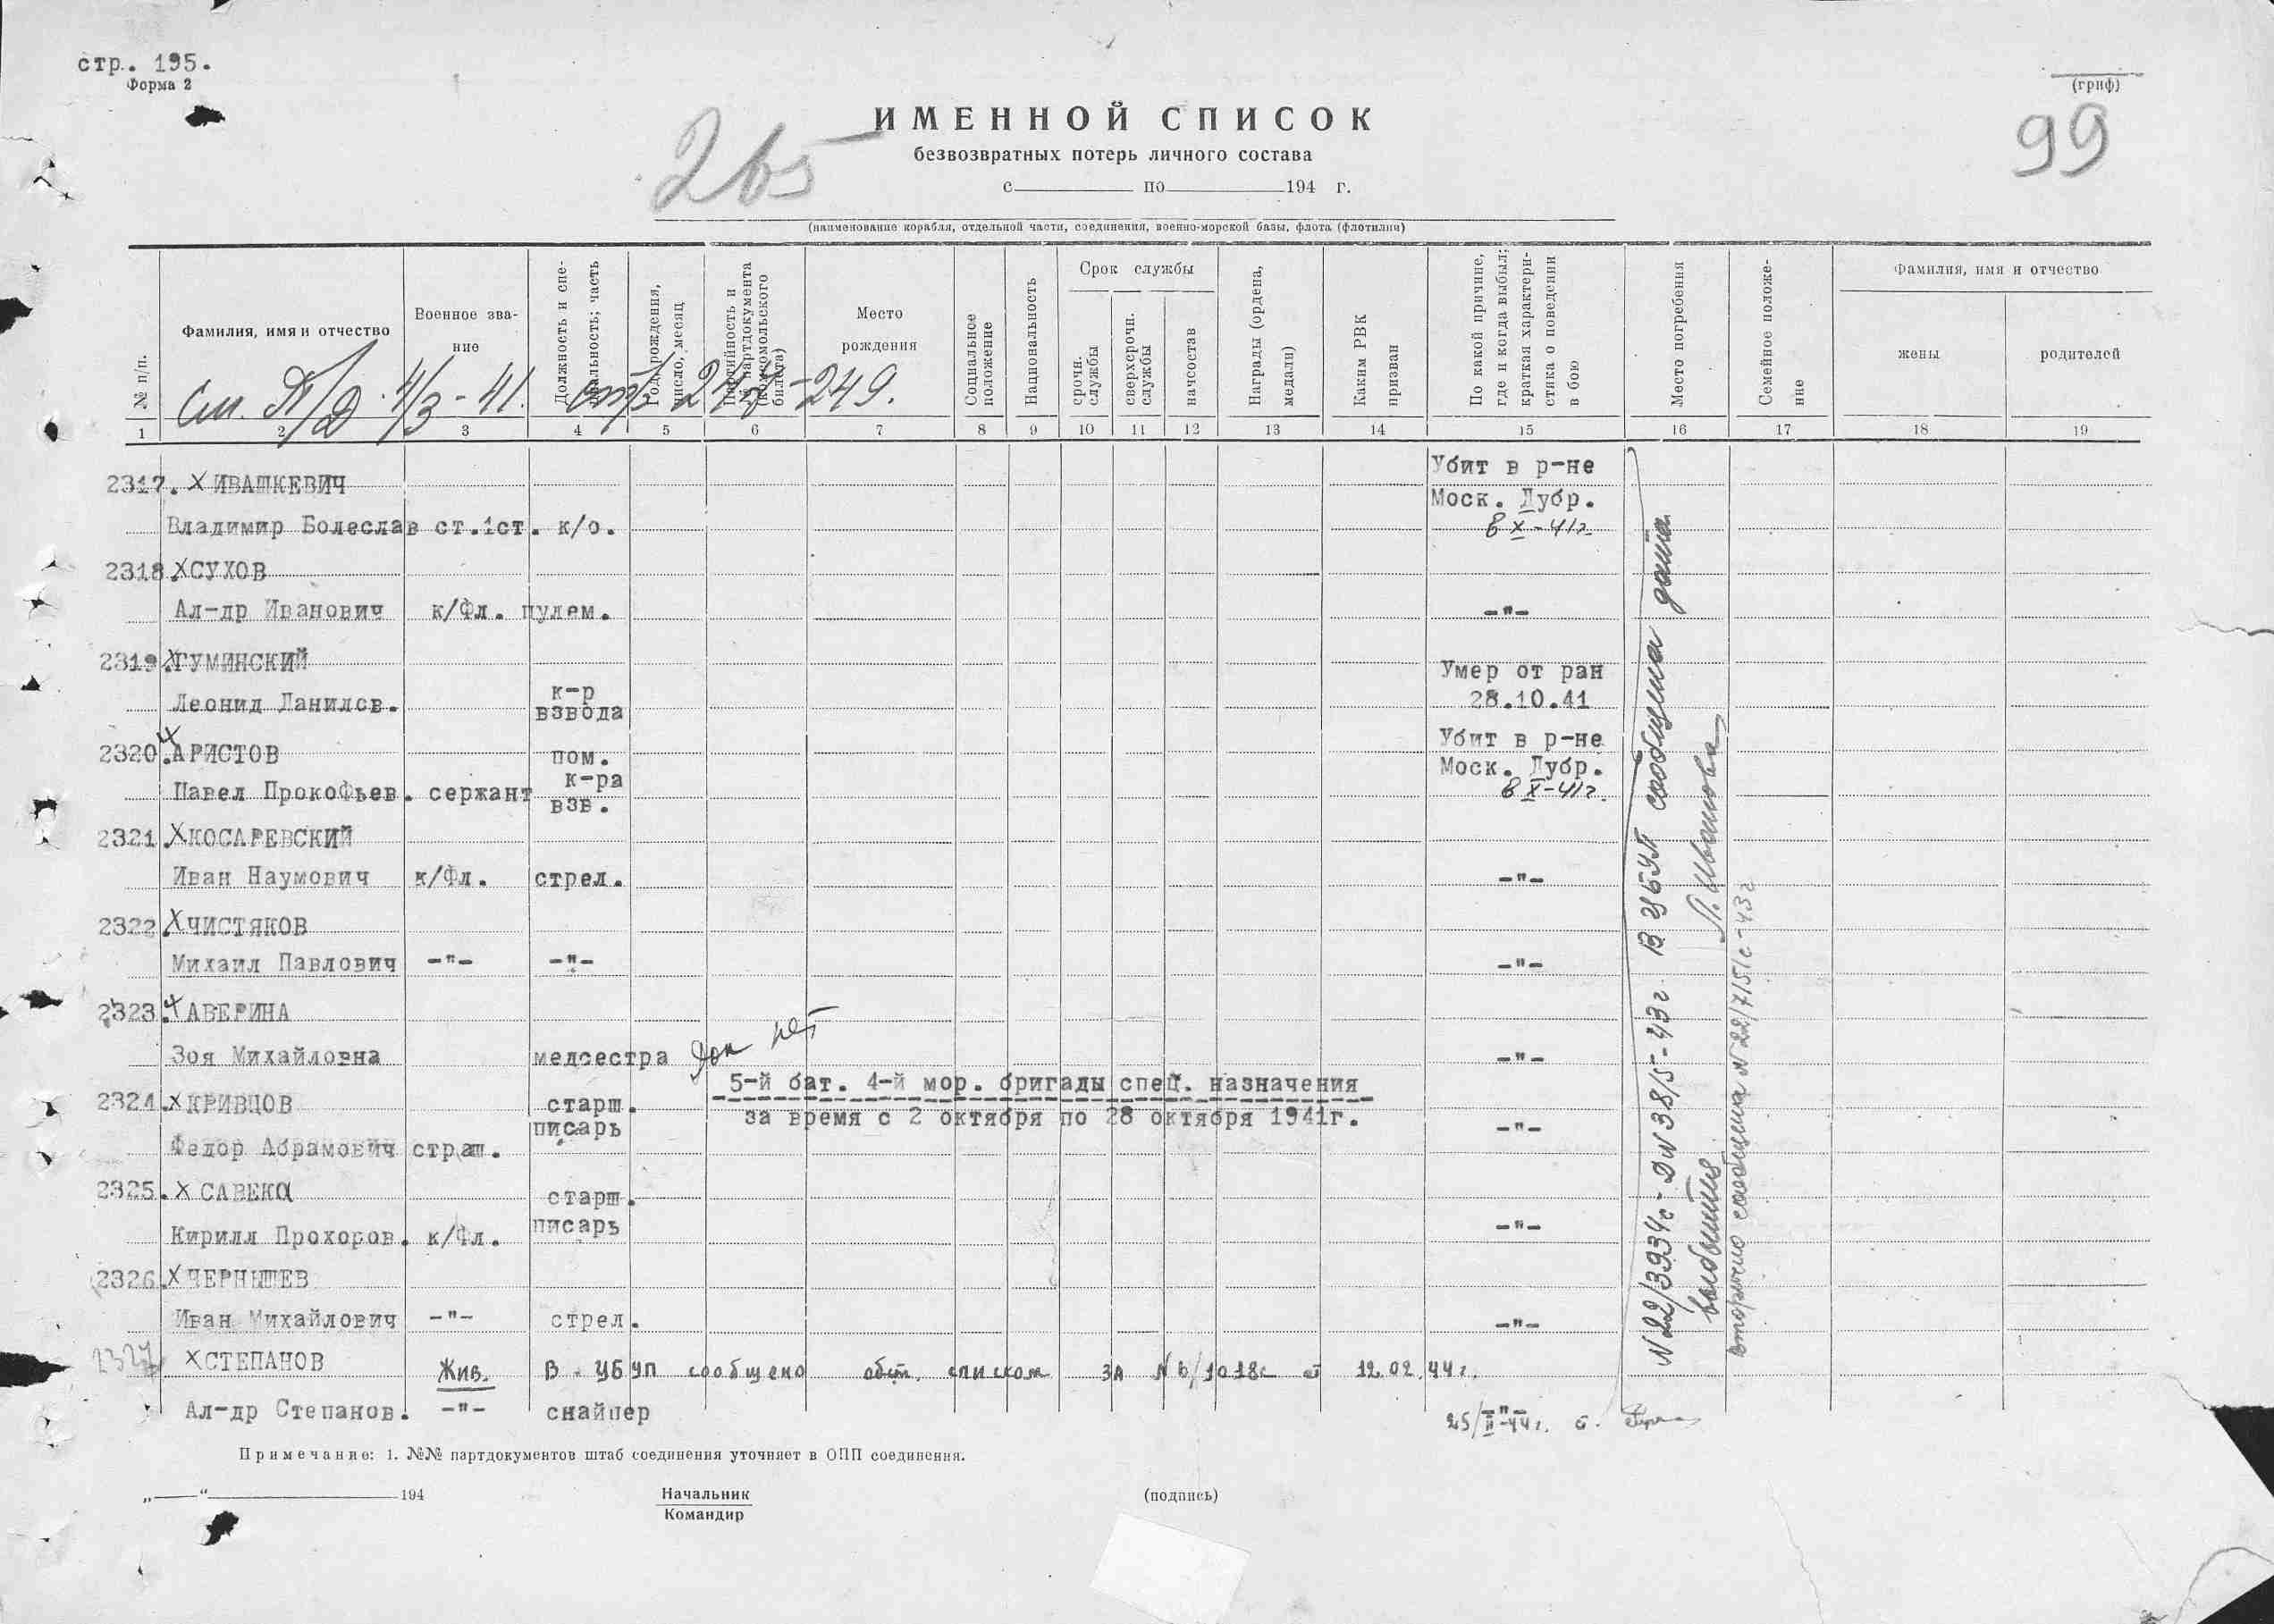 стр. 195.
Форма 2
(гриф)
99
ИМЕННОЙ СПИСОК
265
безвозвратных потерь личного состава
с по 194 г.
(наименование корабля, отдельной части, соединения, военно-морской базы, флота (флотилии)
№ п/п.
Фамилия, имя и отчество
Военное зва-
ние
Должность и спе-
циальность; часть
Год рождения,
число, месяц
Партийность и
№ партдокумента
(комсомольского
билета)
Место
рождения
Социальное
положение
Национальность
Срок службы
срочн.
службы
сверхсрочн.
службы
начсостав
Награды (ордена,
медали)
Каким РВК
призван
По какой причине,
где и когда выбыл;
краткая характери-
стика о поведении
в бою
Место погребения
Семейное положе-
ние
Фамилия, имя и отчество
жены
родителей
См. П/Д 4/3-41. стр 249.
1 2 3 4 5 6 7 8 9 10 11 12 13 14 15 16 17 18 19
2317. X ИВАШКЕВИЧ Убит в р-не
Моск. Дубр.
Владимир Болеслав ст.1ст. к/о. 8 X-41г.
2318. X СУХОВ
Ал-др Иванович к/Фл. пулем. -"-
2319. X ГУМИНСКИЙ Умер от ран
Леонид Данилов. к-р взвода 28.10.41
2320. X АРИСТОВ пом. Убит в р-не
к-ра Моск. Дубр.
Павел Прокофьев. сержант взв. 8 X-41г.
2321. X КОСАРЕВСКИЙ
Иван Наумович к/Фл. стрел. -"-
2322. X ЧИСТЯКОВ
Михаил Павлович -"- -"- -"-
2323. X АВЕРИНА
Зоя Михайловна медсестра -"-
док нет
5-й бат. 4-й мор. бригады спец. назначения
2324. X КРИВЦОВ старш.
за время с 2 октября по 28 октября 1941г.
писарь -"-
Федор Абрамович страш.
2325. X САВЕКО старш.
Кирилл Прохоров. к/Фл. писарь -"-
2326. X ЧЕРНЫШЕВ
Иван Михайлович -"- стрел. -"-
2327 X СТЕПАНОВ Жив. В УБУП сообщено общ. списком за № 6/1018с от 12.02.44г.
Ал-др Степанов. -"- снайпер -"-
25/II-44г.
№ 22/3934с- 38/5-43г. В УБУП сообщена дата
выбытия
Вторично сообщена № 22/7151с-43г
Примечание: 1. №№ партдокументов штаб соединения уточняет в ОПП соединения.
„ “ 194
Начальник
Командир
(подпись)